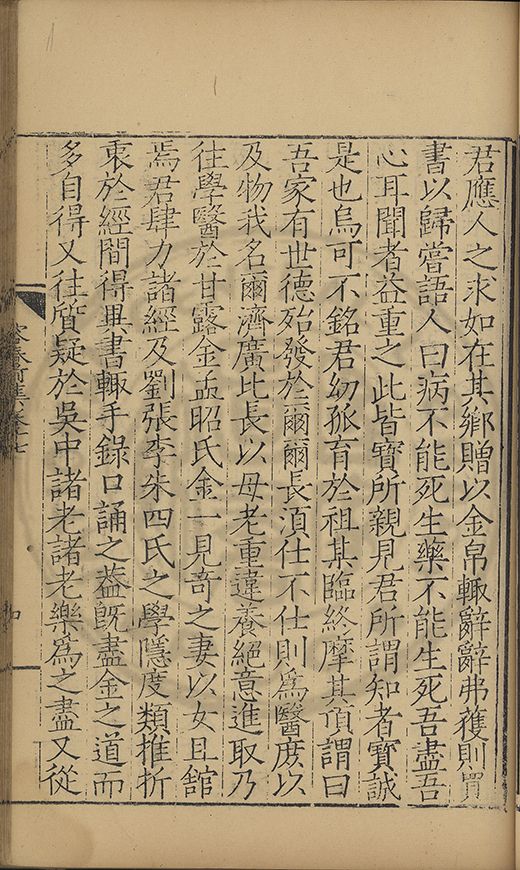 君應人之求如在其鄉贈以金帛輙辭辭弗獲則買
書以歸嘗語人曰病不能死生藥不能生死吾盡吾
心耳聞者益重之此皆寳所親見君所謂知者寳誠
是也烏可不銘君幼孤育於祖某臨終摩其頂謂曰
吾家有世德殆發於爾爾長湏仕不仕則為醫庶以
及物我名爾濟廣比長以母老重違養絕意進取乃
往學醫於甘露金孟昭氏金一見竒之妻以女且舘
焉君肆力諸經及劉張李朱四氏之學隱度類推折
衷於經間得異書輙手錄口誦之葢旣盡金之道而
多自得又往質疑於吳中諸老諸老樂為之盡又從
家藏前集卷十七